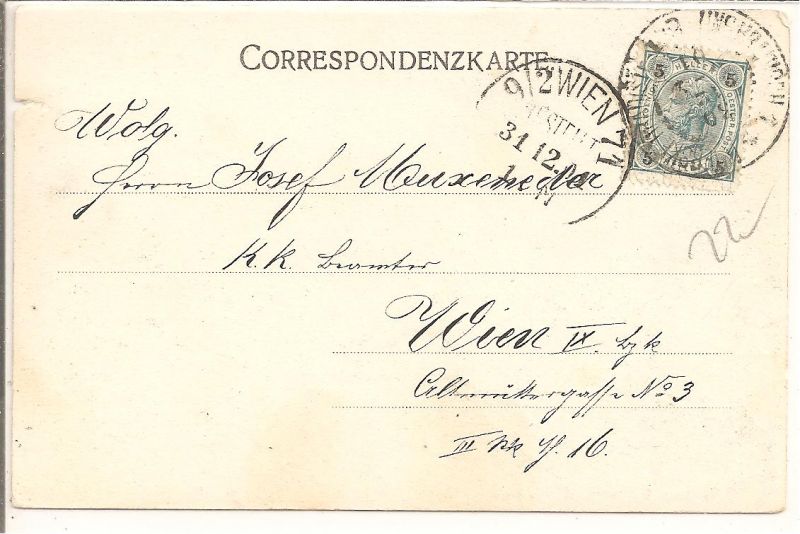 CORRESPONDENZKARTE
9/2 WIEN 71
BESTELLT
31.12.
5 5
5 5
Wolg.
Herrn Josef Muxeneder
K. K. Beamter
Wien IX. bzk
Altmüttergasse No 3
III 16.